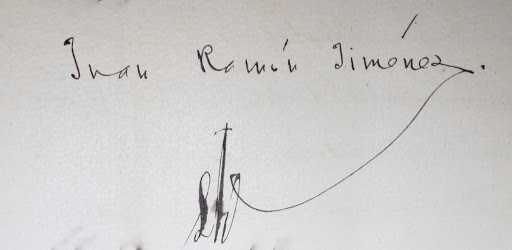 Juan Ramón Jiménez.